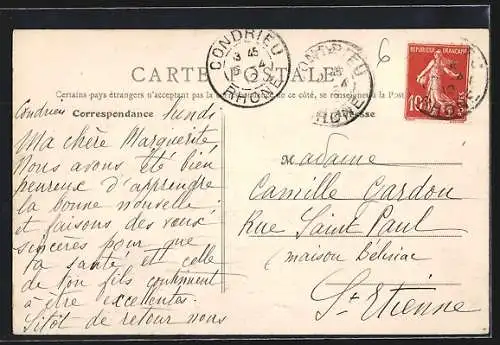 CARTE POSTALE
Certains pays étrangers n'acceptant pas la correspondance de ce côté, se renseigner à la Poste
Correspondance
Adresse
CONDRIEU
RHONE
CONDRIEU
RHONE
REPUBLIQUE FRANÇAISE
10
6
Condrieu Lundi
Ma chère Marguerite
Nous avons été bien
heureux d'apprendre
la bonne nouvelle
et faisons des vœux
sincères pour que
ta santé et celle
de ton fils continuent
à être excellentes.
Sitôt de retour nous
Madame
Camille Gardon
Rue Saint Paul
maison
St Etienne